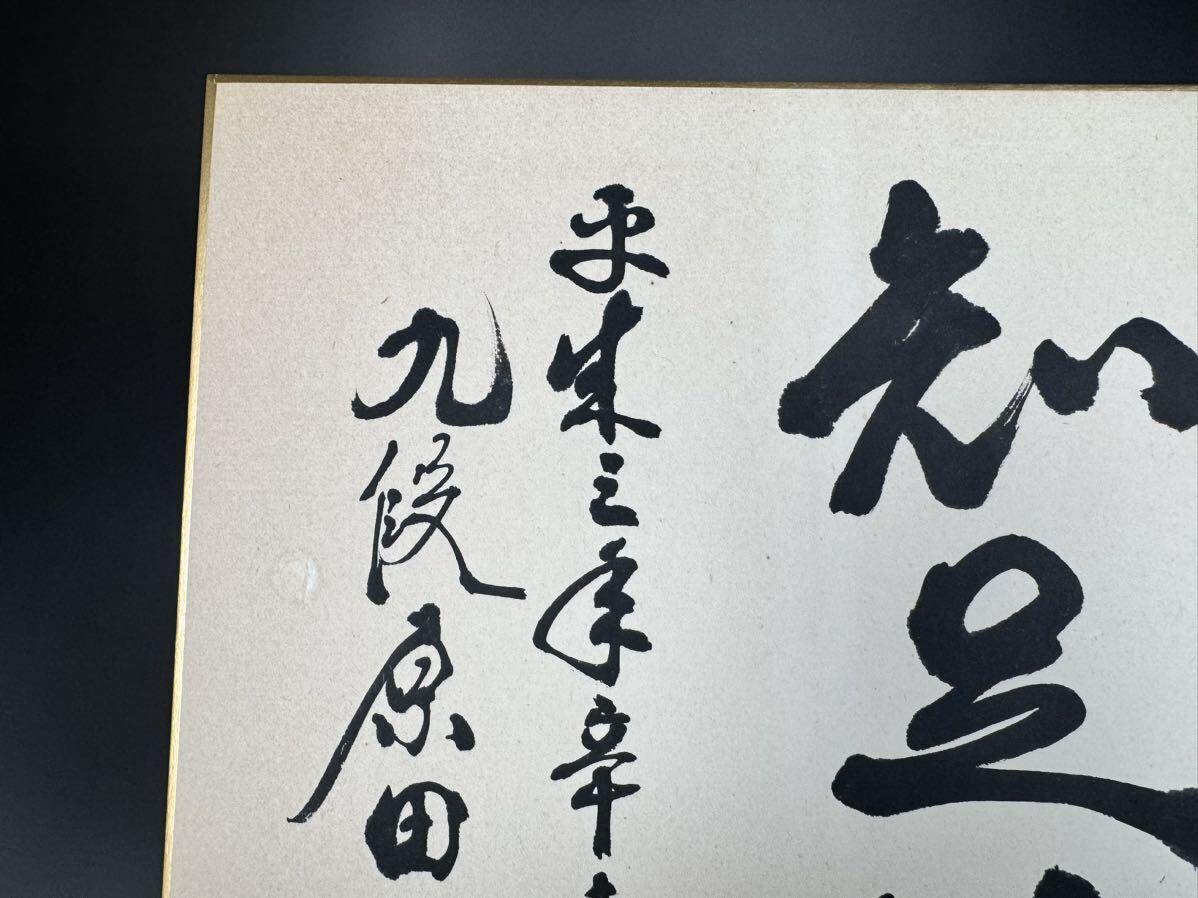 知足
平成三年辛
九段原田